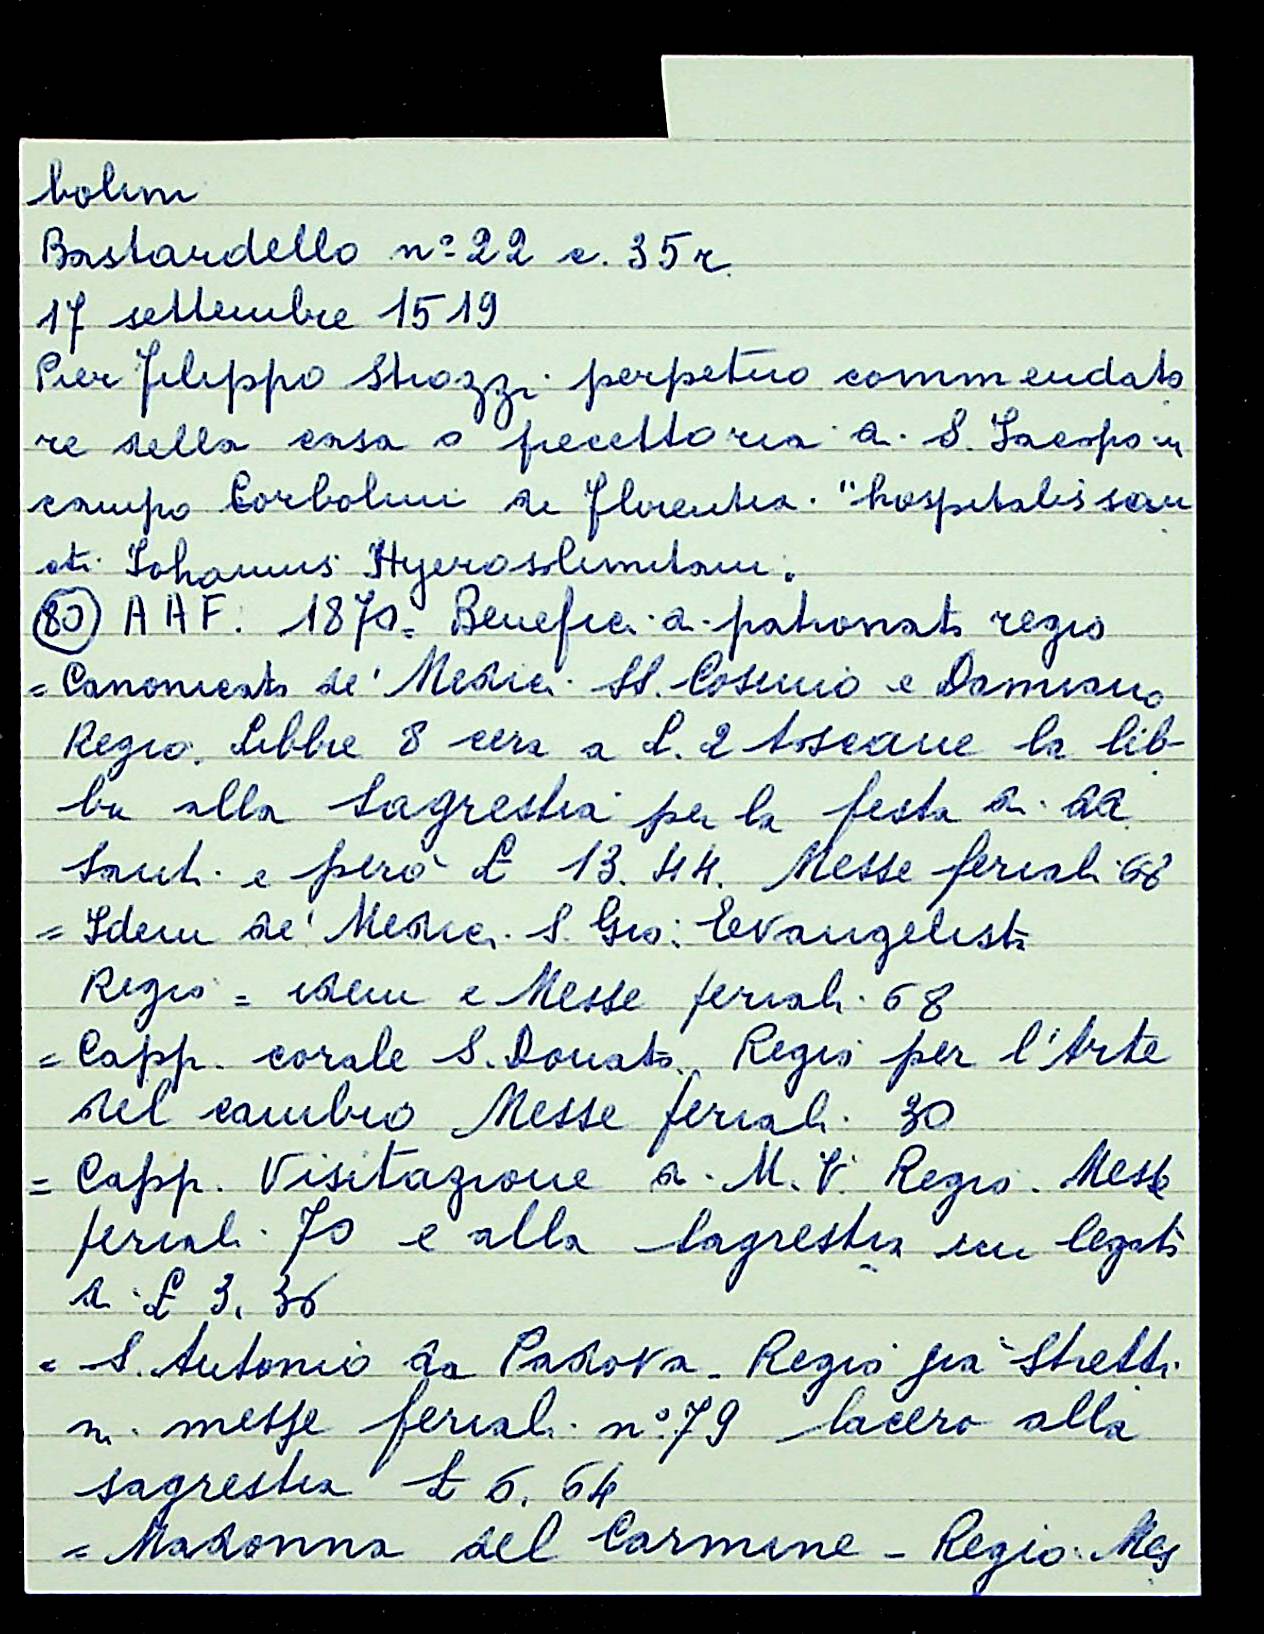 bolini
Bastardello nº 22 c. 35 r.
17 settembre 1519
Pier Filippo Strozzi perpetuo commendato
re della casa o precettoria di S. Jacopo in
campo Corbolini di Florentia. "hospitalis san
cti Johannis Hyerosolimitani.
80 AAF. 1870= Benefici di patronato regio
= Canonicato de' Medici SS. Cosimo e Damiano
Regio. Libbre 8 cera a L. 2 toscane la lib-
bra alla Sagrestia per la festa di dd
Santi e però £ 13.44. Messe feriali 68
= Idem de' Medici S. Gio: Evangelista
Regio = idem e Messe feriali 68
= Capp. corale S. Donato. Regio per l'Arte
del cambio Messe feriali 30
= Capp. Visitazione di M. V. Regio. Messe
feriali 70 e alla Sagrestia un legato
di £ 3.36
= S. Antonio da Padova - Regio già Stretti
ni messe feriali nº 79 lacero alla
sagrestia £ 6.64
= Madonna del Carmine - Regio. Mes